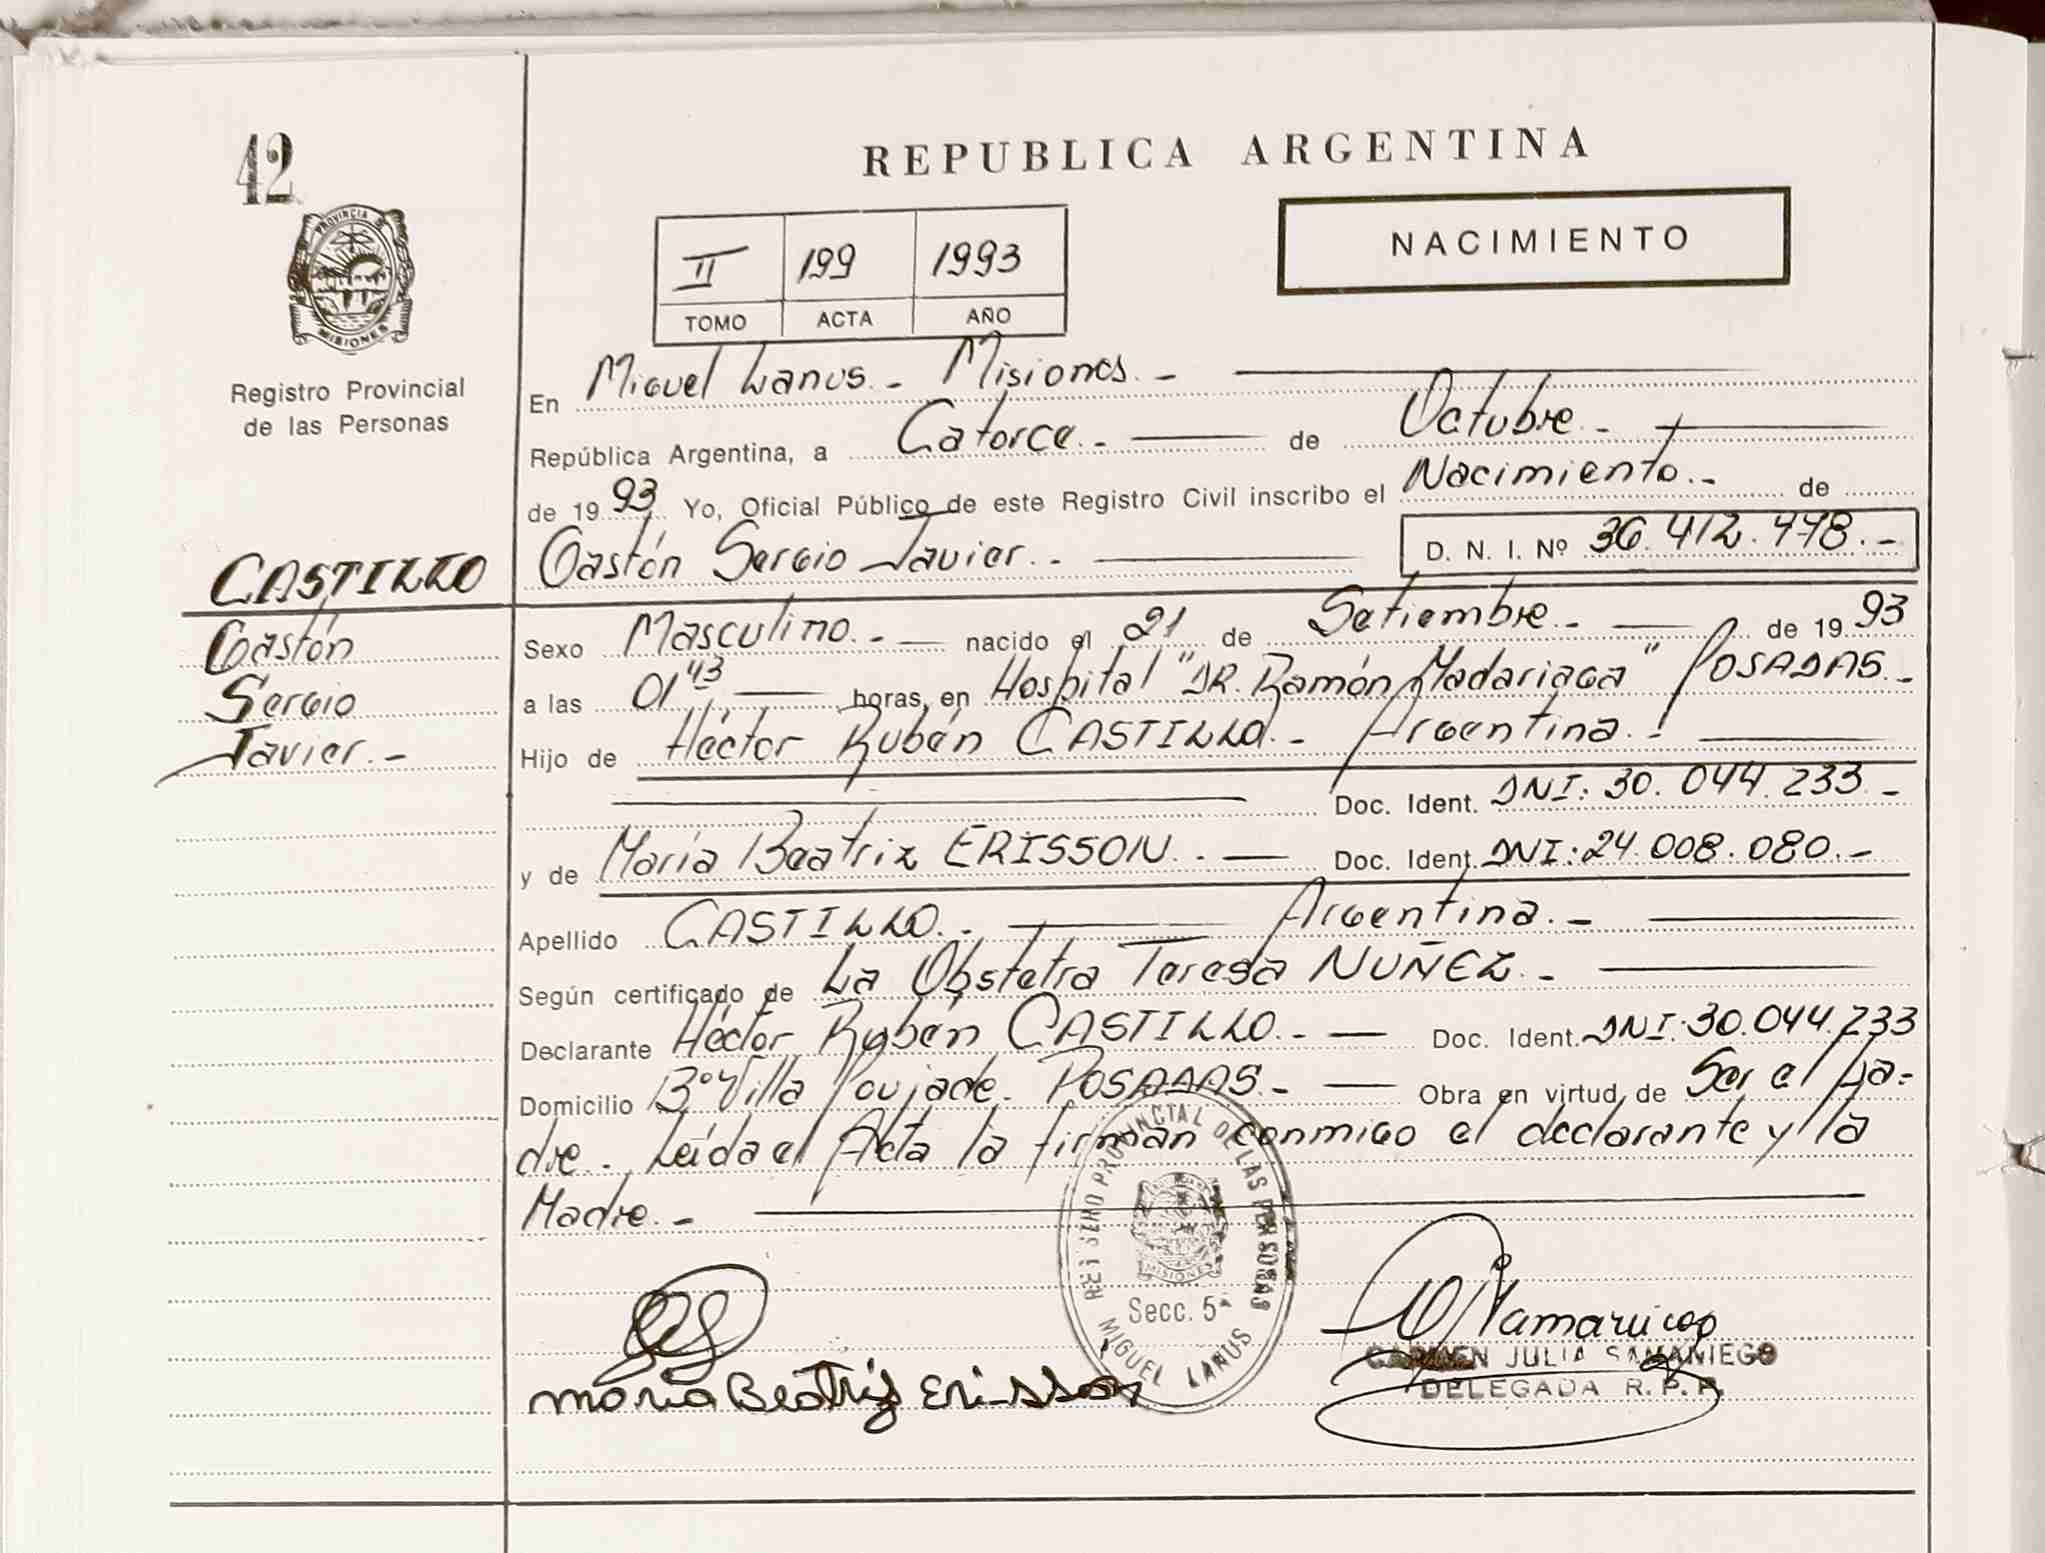 42
REPUBLICA ARGENTINA
PROVINCIA DE
MISIONES
Registro Provincial
de las Personas
II 199 1993
TOMO ACTA AÑO
NACIMIENTO
En Miguel Lanus.- Misiones.-
República Argentina, a Catorce.- de Octubre.-
de 1993 Yo, Oficial Público de este Registro Civil inscribo el Nacimiento.- de
Gastón Sergio Javier.- D. N. I. Nº 36.412.778.-
CASTILLO
Gastón
Sergio
Javier.-
Sexo Masculino.- nacido el 21 de Setiembre.- de 1993
a las 01 43 horas, en Hospital "DR. Ramón Madariaga" POSADAS.-
Hijo de Héctor Rubén CASTILLO.- Argentina.-
Doc. Ident. DNI: 30.044.233.-
y de María Beatriz ERISSON.- Doc. Ident. DNI: 24.008.080.-
Apellido CASTILLO.- Argentina.-
Según certificado de La Obstetra Teresa NUÑEZ.-
Declarante Héctor Rubén CASTILLO.- Doc. Ident. DNI: 30.044.233
Domicilio Bº Villa Poujade. POSADAS.- Obra en virtud de Ser el Pa-
dre. Leída el Acta la firman conmigo el declarante y la
Madre.-
REGISTRO PROVINCIAL DE LAS PERSONAS
MISIONES
Secc. 5ª
MIGUEL LANUS
Maria Beatriz Erisson
CARMEN JULIA SAMANIEGO
DELEGADA R. P. P.